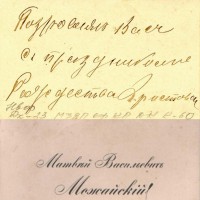 Поздравляю Васъ
съ праздникомъ
Рождества Христова
Матвѣй Васильевичъ
Можайскій